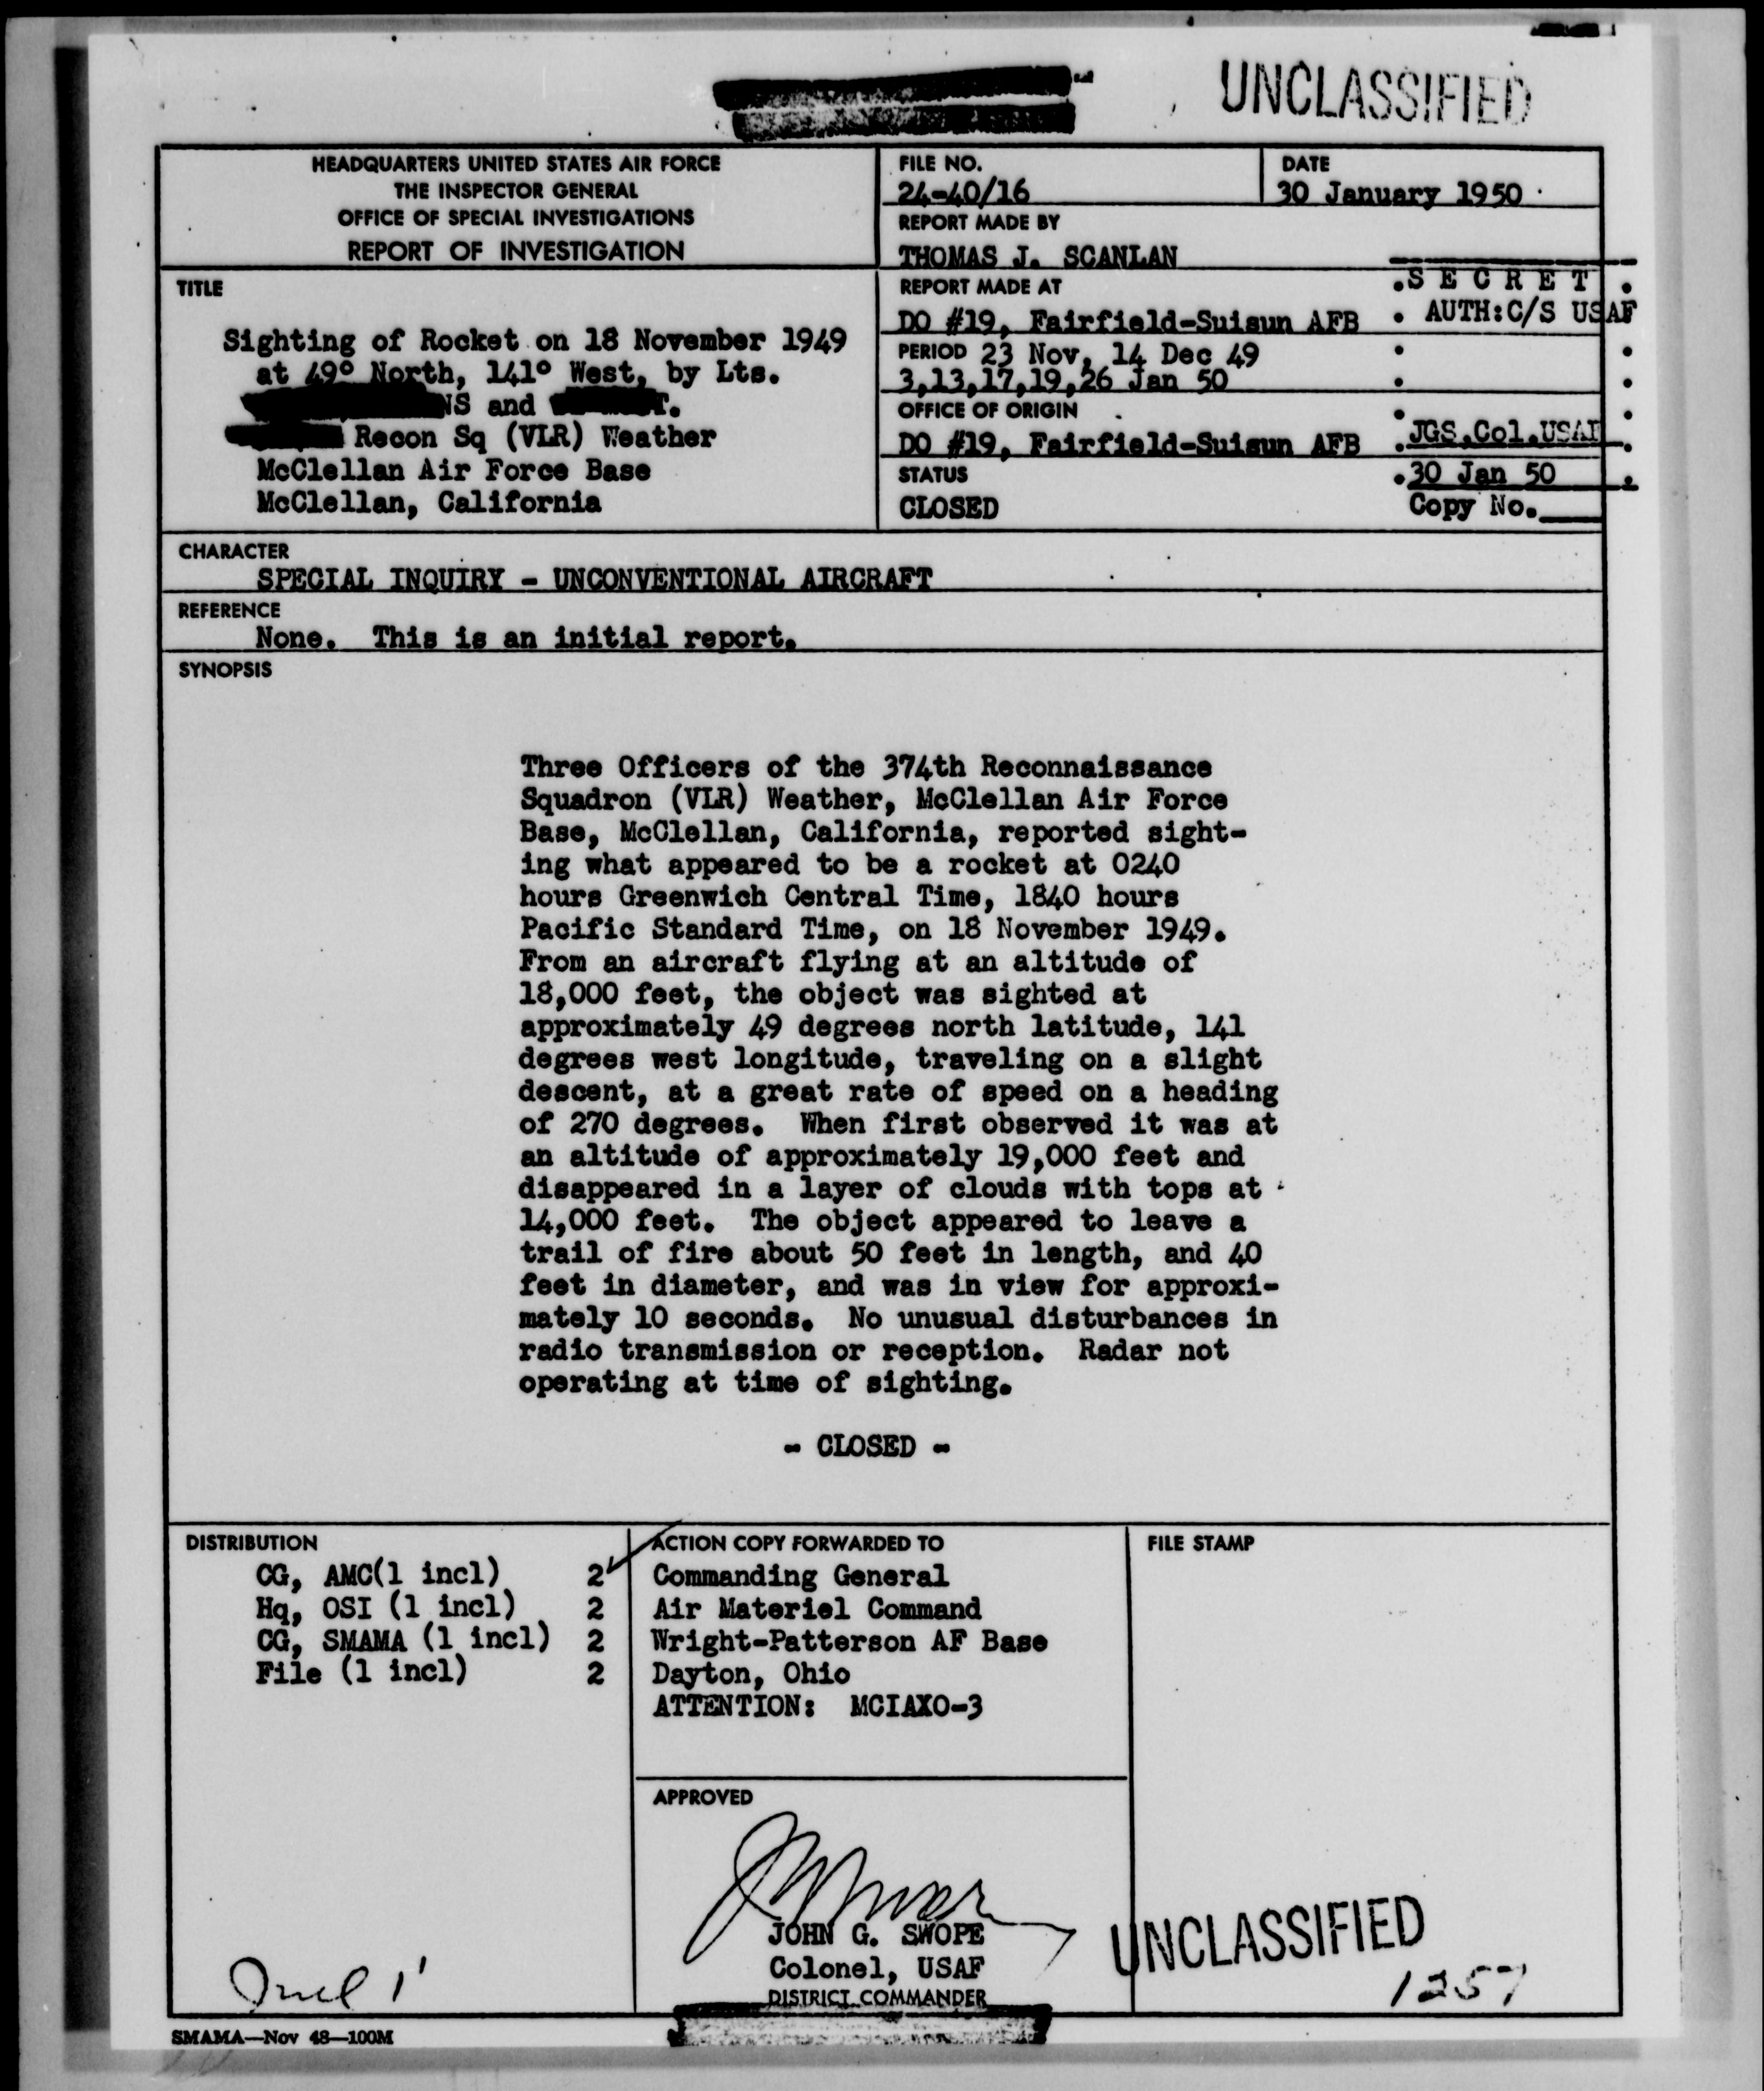 UNCLASSIFIED
HEADQUARTERS UNITED STATES AIR FORCE
THE INSPECTOR GENERAL
OFFICE OF SPECIAL INVESTIGATIONS
REPORT OF INVESTIGATION
FILE NO.
24-40/16
DATE
30 January 1950
REPORT MADE BY
THOMAS J. SCANLAN
REPORT MADE AT
DO #19, Fairfield-Suisun AFB
PERIOD 23 Nov, 14 Dec 49
3,13,17,19,26 Jan 50
OFFICE OF ORIGIN
DO #19, Fairfield-Suisun AFB
STATUS
CLOSED
.S E C R E T .
. AUTH:C/S USAF
.JGS,Col.USAF
.30 Jan 50 .
Copy No.___
TITLE
Sighting of Rocket on 18 November 1949
at 49° North, 141° West, by Lts.
NS and T.
Recon Sq (VLR) Weather
McClellan Air Force Base
McClellan, California
CHARACTER
SPECIAL INQUIRY - UNCONVENTIONAL AIRCRAFT
REFERENCE
None. This is an initial report.
SYNOPSIS
Three Officers of the 374th Reconnaissance
Squadron (VLR) Weather, McClellan Air Force
Base, McClellan, California, reported sight-
ing what appeared to be a rocket at 0240
hours Greenwich Central Time, 1840 hours
Pacific Standard Time, on 18 November 1949.
From an aircraft flying at an altitude of
18,000 feet, the object was sighted at
approximately 49 degrees north latitude, 141
degrees west longitude, traveling on a slight
descent, at a great rate of speed on a heading
of 270 degrees. When first observed it was at
an altitude of approximately 19,000 feet and
disappeared in a layer of clouds with tops at
14,000 feet. The object appeared to leave a
trail of fire about 50 feet in length, and 40
feet in diameter, and was in view for approxi-
mately 10 seconds. No unusual disturbances in
radio transmission or reception. Radar not
operating at time of sighting.
- CLOSED -
DISTRIBUTION
CG, AMC(1 incl) 2
Hq, OSI (1 incl) 2
CG, SMAMA (1 incl) 2
File (1 incl) 2
ACTION COPY FORWARDED TO
Commanding General
Air Materiel Command
Wright-Patterson AF Base
Dayton, Ohio
ATTENTION: MCIAXO-3
FILE STAMP
APPROVED
JOHN G. SWOPE
Colonel, USAF
DISTRICT COMMANDER
UNCLASSIFIED
1257
SMAMA—Nov 48—100M